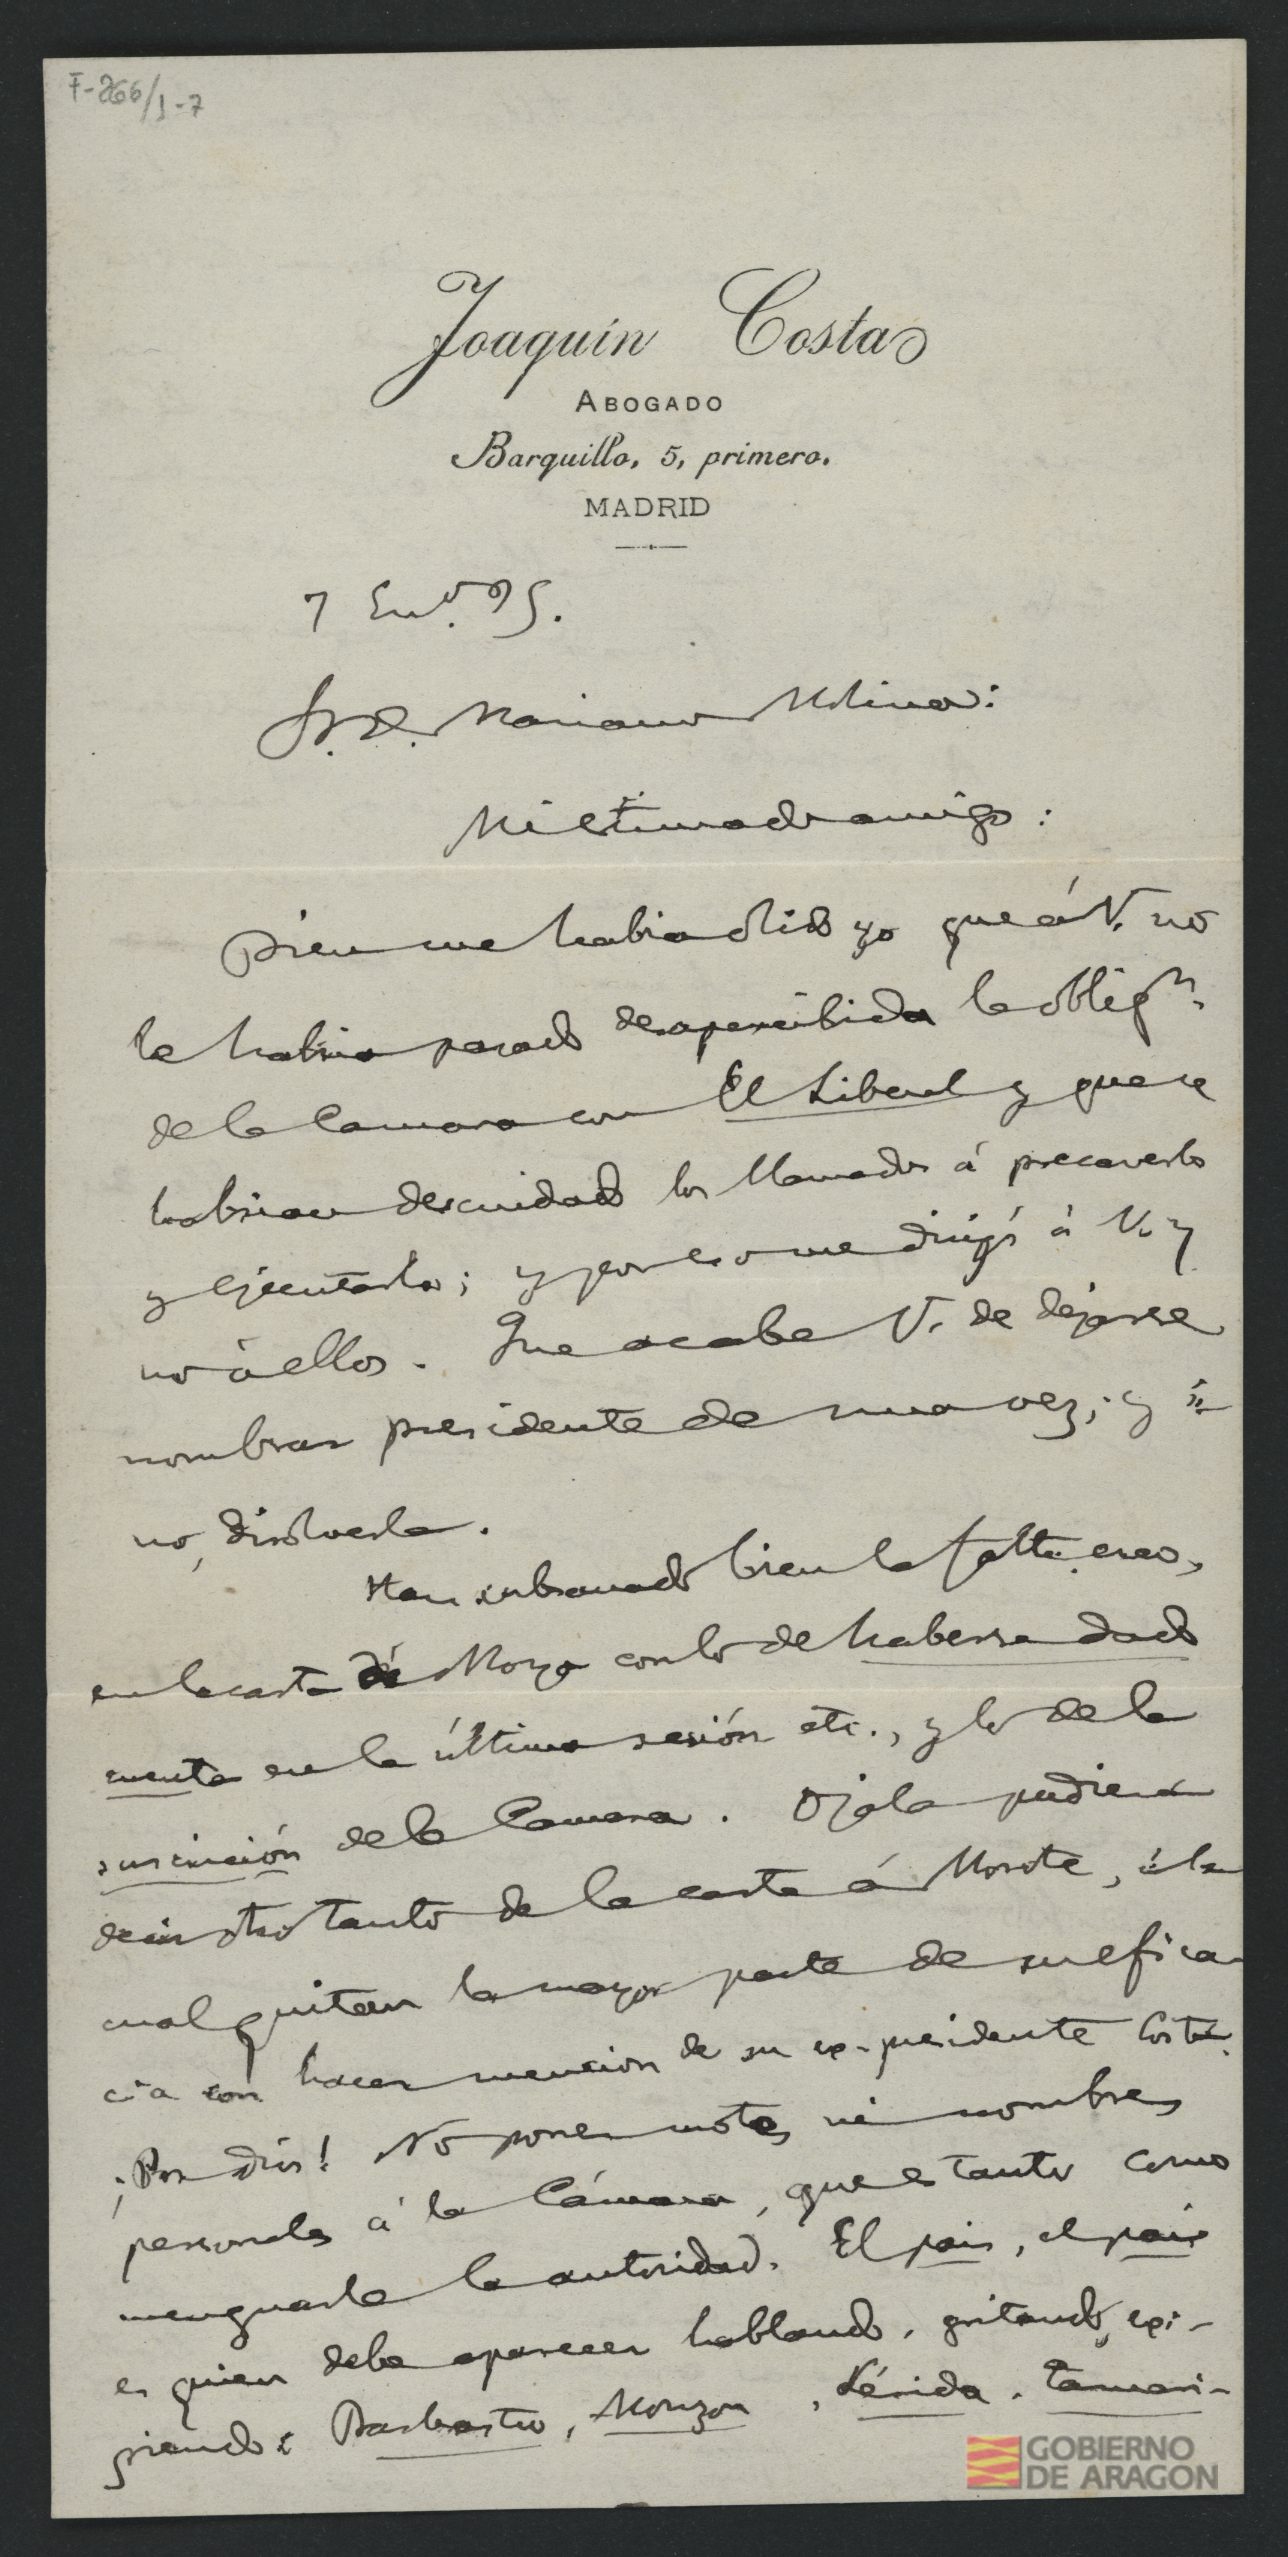 F-266/1-7
Joaquín Costa
ABOGADO
Barquillo, 5, primero.
MADRID
7 En.º 95.
Sr. D. Mariano Molina:
Mi estimado amigo:
Bien me habia olido yo que á V. no
le habria pasado desapercibida la obligⁿ.
de la Camara con El Liberal y que se
habrian descuidado los llamados á precaverlo
y ejecutarlo; y por eso me dirigí á V. y
no á ellos. Que acabe V. de dejarse
nombrar presidente de una vez; y si
no, disolverla.
Han subsanado bien la falta, creo,
en la carta de Moya con lo de haberse dado
cuenta en la última sesión etc., y lo de la
suscrición de la Camara. Ojala pudiera
decir otro tanto de la carta á Morote, á la
cual quitan la mayor parte de su efica-
cia con hacer mencion de su ex-presidente Costa.
¡Por Dios! No poner motes ni nombres
personales á la Cámara, que es tanto como
menguarle la autoridad. El pais, el pais
es quien debe aparecer hablando, gritando, exi-
giendo: Barbastro, Monzon, Lérida, Tamari-
GOBIERNO
DE ARAGON